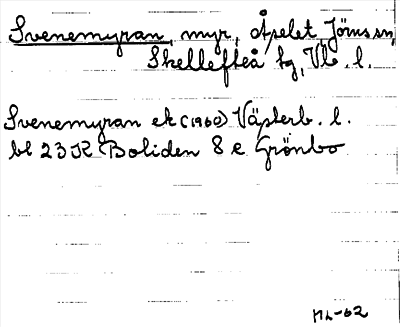 Svenemyran, myr, Åselet Jörns sn,
Skellefteå tg, Vb. l.
Svenemyran ek (1960) Västerb. l.
bl 23 K Boliden 8 e Grönbo
ML-62